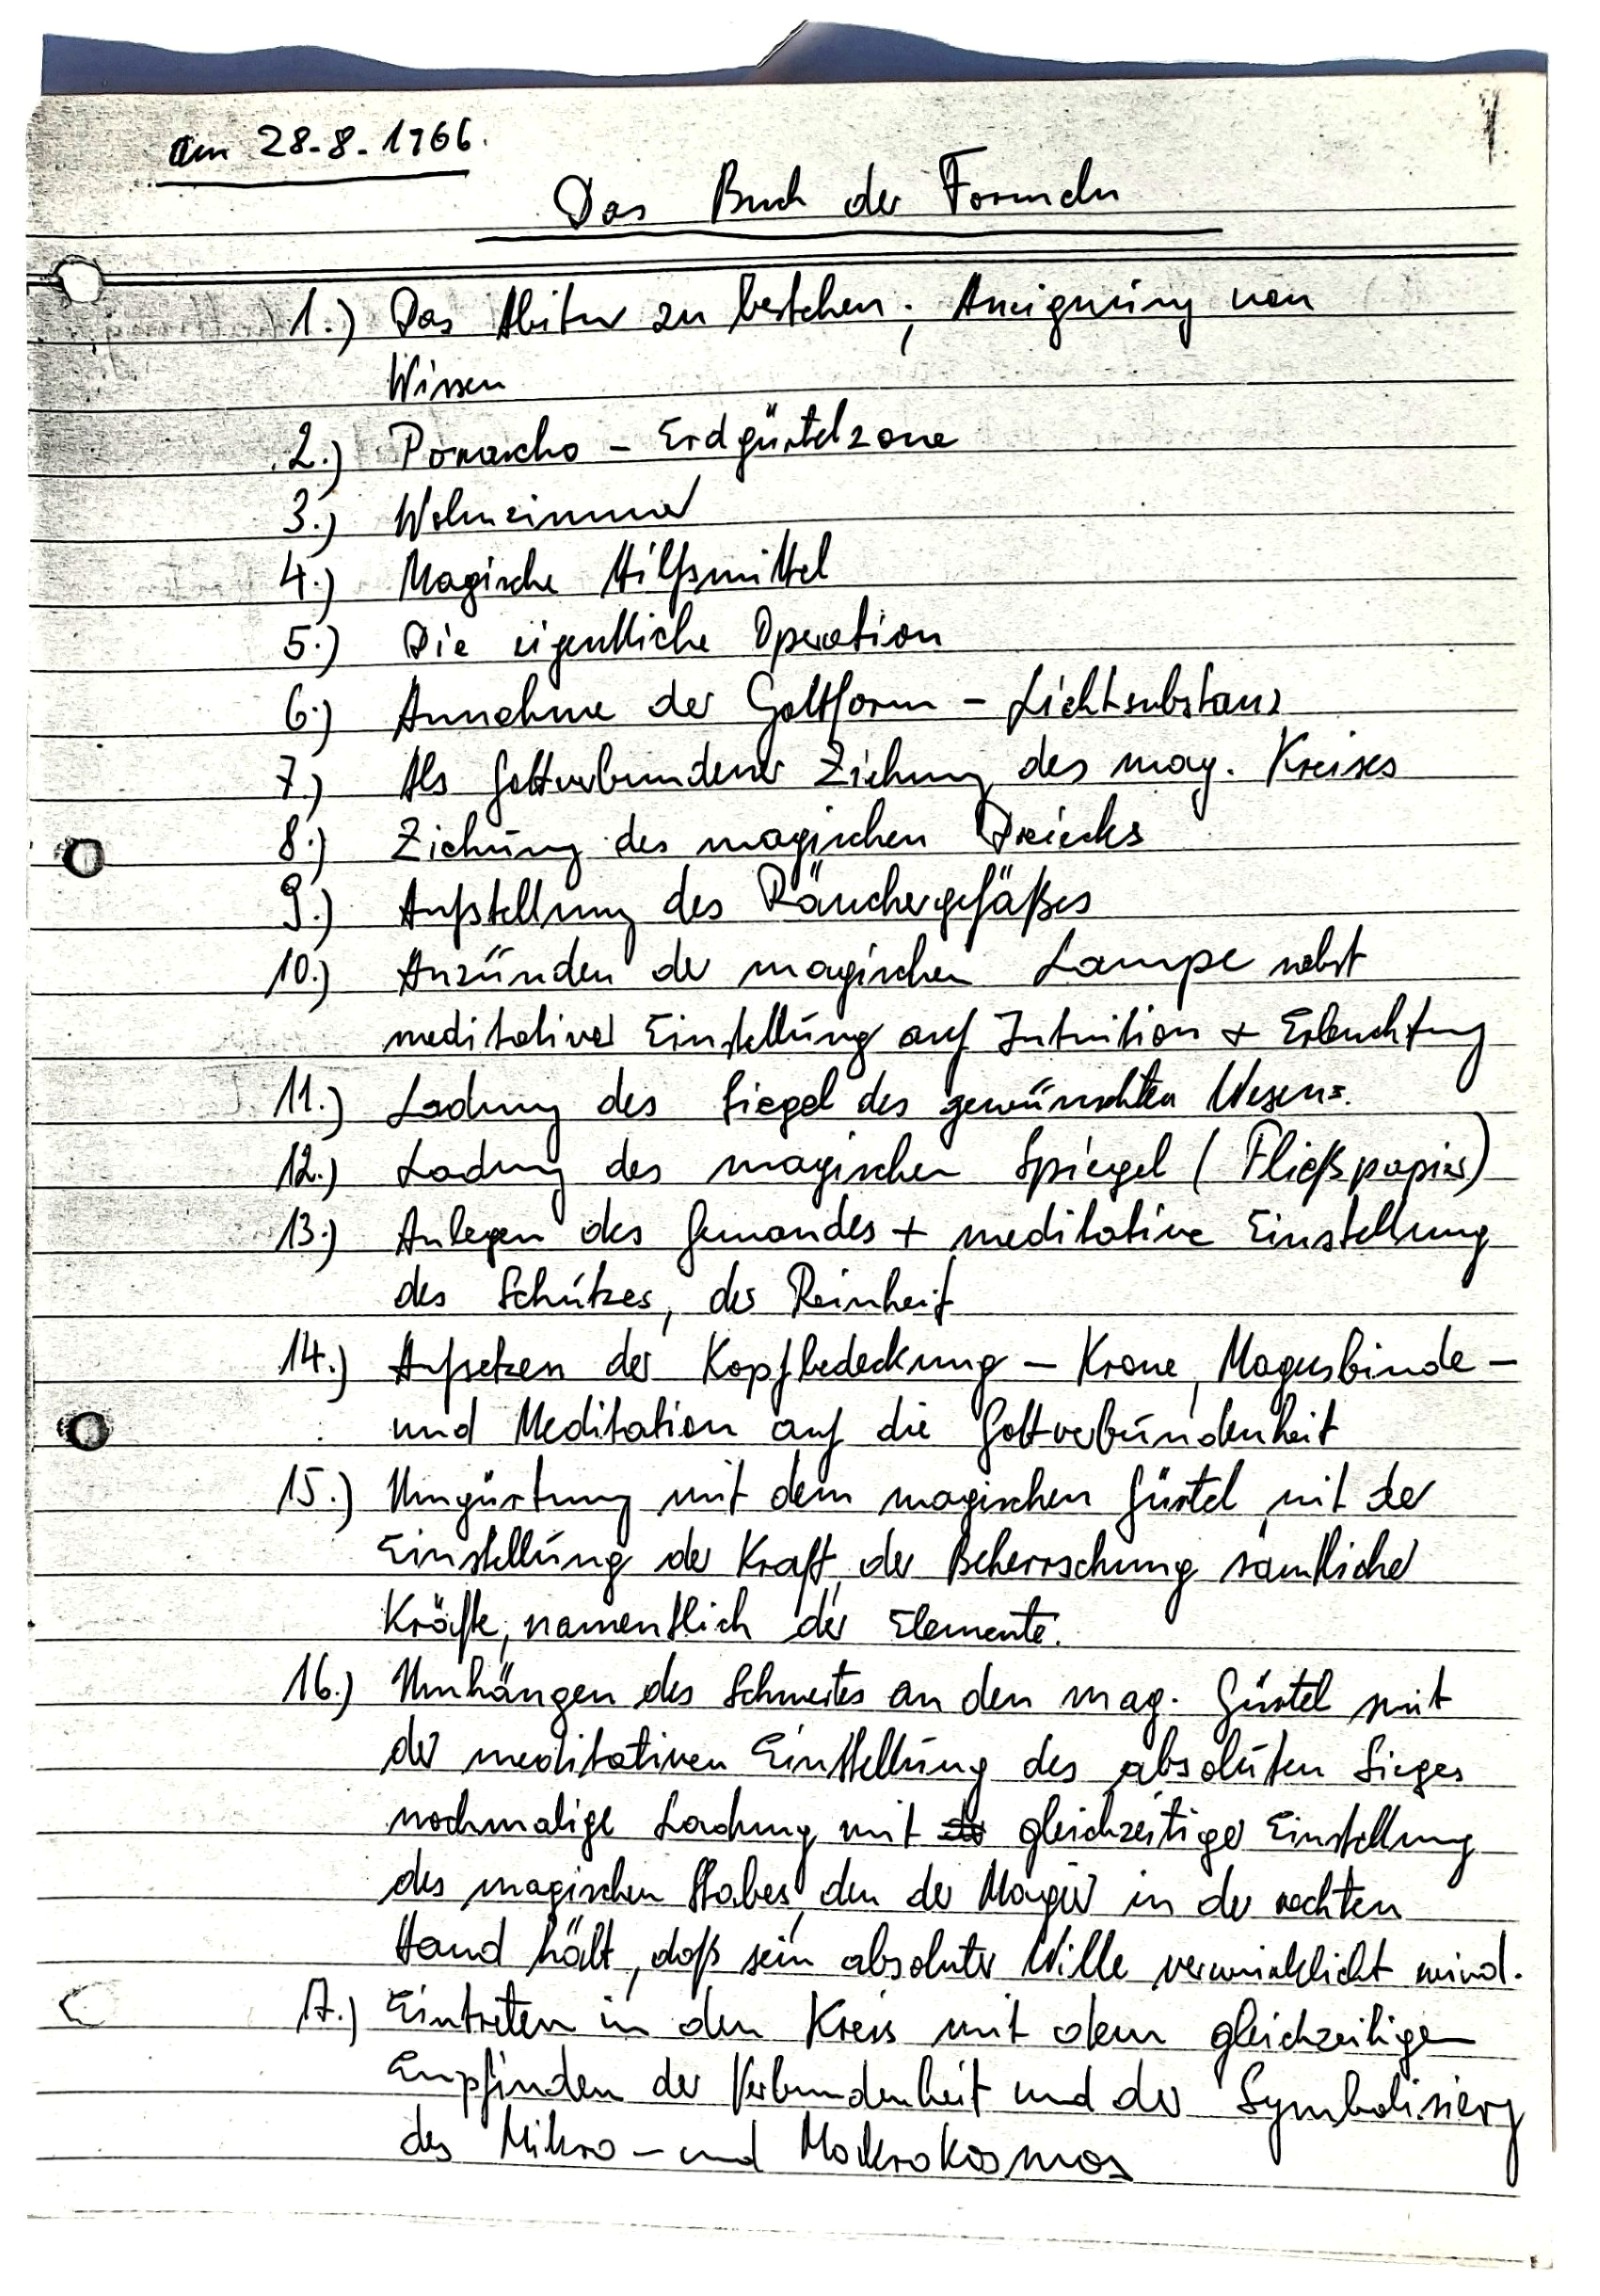 am 28.8.1966.
Das Buch der Formeln
1.) Das Abitur zu bestehen; Aneignung von
Wissen
2.) Pomascho – Erdgürtelzone
3.) Wohnzimmer
4.) Magische Hilfsmittel
5.) Die eigentliche Operation
6.) Annahme der Gottform – Lichtsubstanz
7.) Als Gottverbundener Ziehung des mag. Kreises
8.) Ziehung des magischen Dreiecks
9.) Aufstellung des Räuchergefäßes
10.) Anzünden der magischen Lampe nebst
meditativer Einstellung auf Intuition + Erleuchtung
11.) Ladung des Siegel des gewünschten Wesens.
12.) Ladung des magischen Spiegel (Fließpapier)
13.) Anlegen des Gewandes + meditative Einstellung
des Schutzes, der Reinheit
14.) Aufsetzen der Kopfbedeckung – Krone, Magusbinde –
und Meditation auf die Gottverbundenheit
15.) Umgürtung mit dem magischen Gürtel mit der
Einstellung der Kraft, der Beherrschung sämtlicher
Kräfte, namentlich der Elemente.
16.) Umhängen des Schwertes an den mag. Gürtel mit
der meditativen Einstellung des absoluten Sieges
nochmalige Ladung mit gleichzeitiger Einstellung
des magischen Stabes, den der Magier in der rechten
Hand hält, daß sein absoluter Wille verwirklicht wird.
17.) Eintreten in den Kreis mit dem gleichzeitigen
Empfinden der Verbundenheit und der Symbolisierg
des Mikro- und Makrokosmos